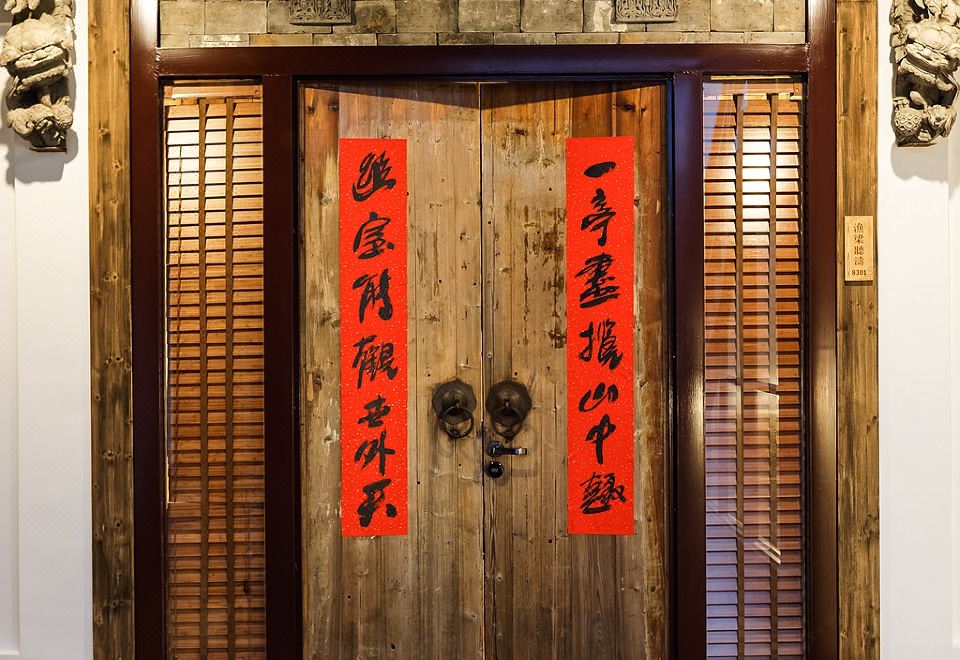 一亭盡攬山中趣
幽室能觀世外天
漁梁聽濤
8301